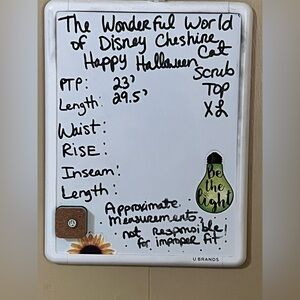 The Wonderful World
of Disney Cheshire
Cat
Happy Halloween
Scrub
TOP
XL
PTP: 23'
Length: 29.5'
Waist:
RISE:
Inseam:
Length:
Be
the
light
Approximate
measurements
not responsible!
for improper fit
U BRANDS